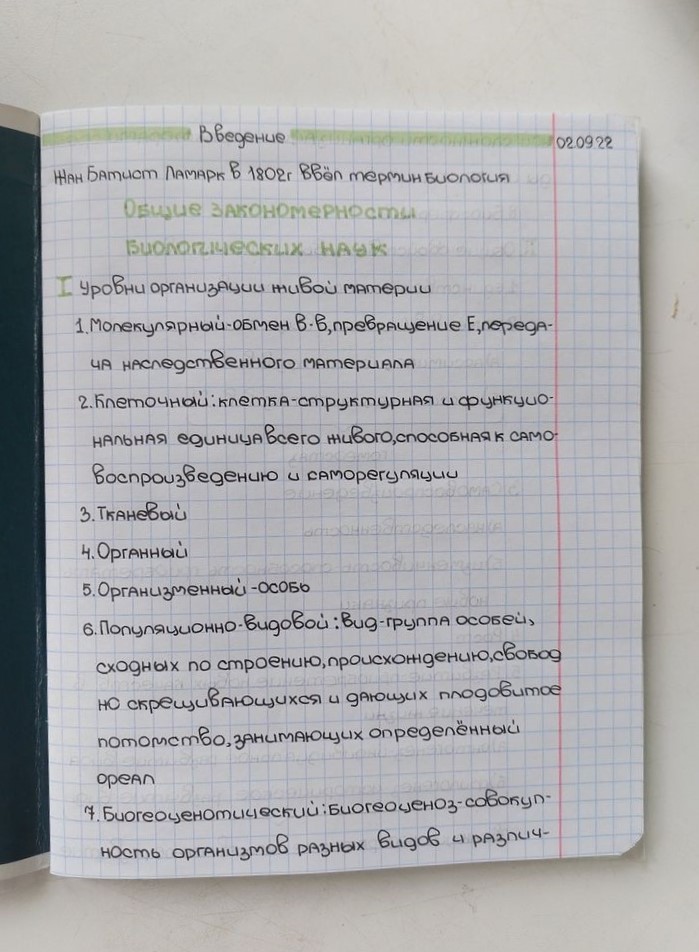 Введение
02.09.22
Жан Батист Ламарк в 1802г ввёл термин биология
Общие закономерности
биологических наук
I Уровни организации живой материи
1. Молекулярный-обмен в-в, превращение Е, переда-
ча наследственного материала
2. Клеточный: клетка-структурная и функцио-
нальная единица всего живого, способная к само-
воспроизведению и саморегуляции
3. Тканевый
4. Органный
5. Организменный-особь
6. Популяционно-видовой: вид-группа особей,
сходных по строению, происхождению, свобод
но скрещивающихся и дающих плодовитое
потомство, занимающих определённый
ореал
7. Биогеоценотический: биогеоценоз-совокуп-
ность организмов разных видов и различ-